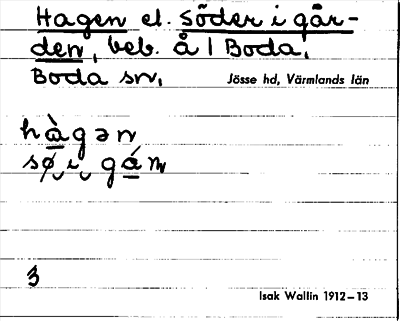 Hagen el. söder i går-
den, beb. å 1 Boda,
Boda sn, Jösse hd, Värmlands län
hàgən
sø̨ i gán
3
Isak Wallin 1912–13